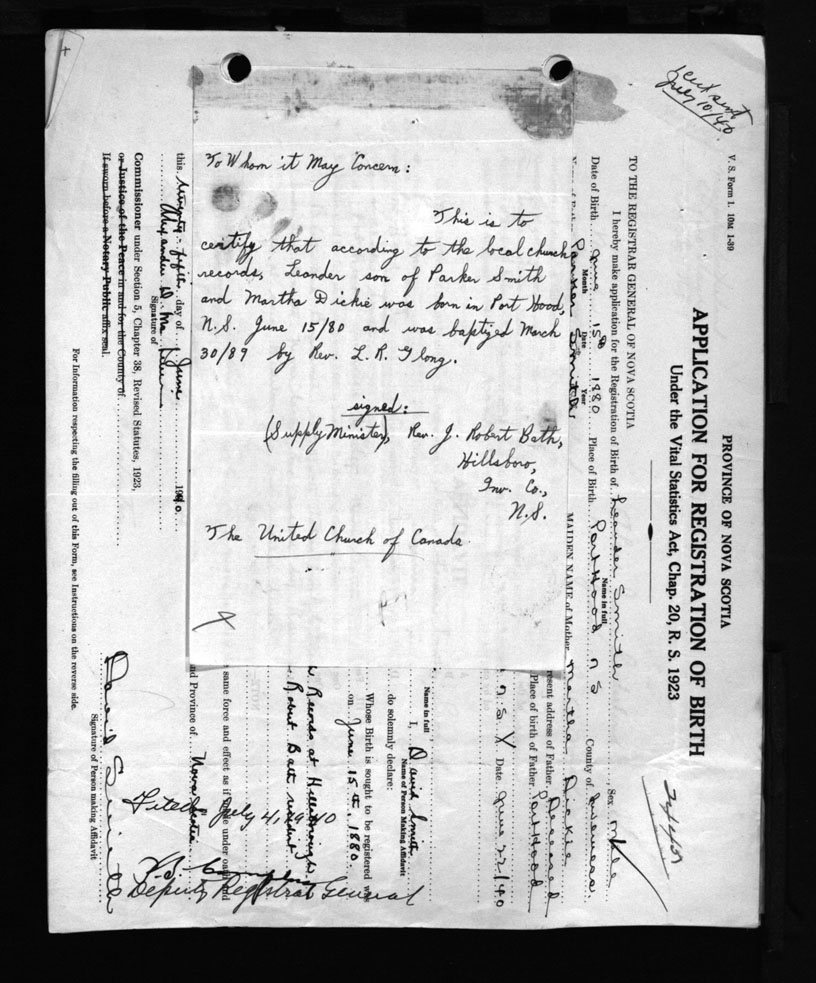 To Whom it May Concern:
This is to
certify that according to the local church
records, Leander son of Parker Smith
and Martha Dickie was born in Port Hood,
N.S. June 15/80 and was baptized March
30/89 by Rev. L. R. Glong.
signed:
(Supply Minister), Rev. J. Robert Bath,
Hillsboro,
Inv. Co.,
N.S.
The United Church of Canada
July 10/40
V. S. Form L. 10M 1-39
PROVINCE OF NOVA SCOTIA
APPLICATION FOR REGISTRATION OF BIRTH
Under the Vital Statistics Act, Chap. 20, R. S. 1923
TO THE REGISTRAR GENERAL OF NOVA SCOTIA
I hereby make application for the Registration of Birth of Leander Smith Sex Male
Name in full
Date of Birth June 15th 1880 Place of Birth Port Hood N S County of Inverness
Month Date Year
Parker Smith MAIDEN NAME of Mother Martha Dickie
resent address of Father Deceased
Place of birth of Father Port Hood
N S Date June 22/40
I, David Smith
Name in full
Name of Person Making Affidavit
do solemnly declare:
Whose Birth is sought to be registered w
on June 15th, 1880.
Records at Hillsborough
Robert Batt resident
same force and effect as if made under oa
nd Province of Nova Scotia
this twenty-fifth day of June 1940.
Signature of
Commissioner under Section 5, Chapter 38, Revised Statutes, 1923,
or Justice of the Peace in and for the County of
If sworn before a Notary Public affix seal.
David Smith
Signature of Person making Affidavit
For Information respecting the filling out of this Form, see Instructions on the reverse side.
Filed July 4, 1940
Deputy Registrar General